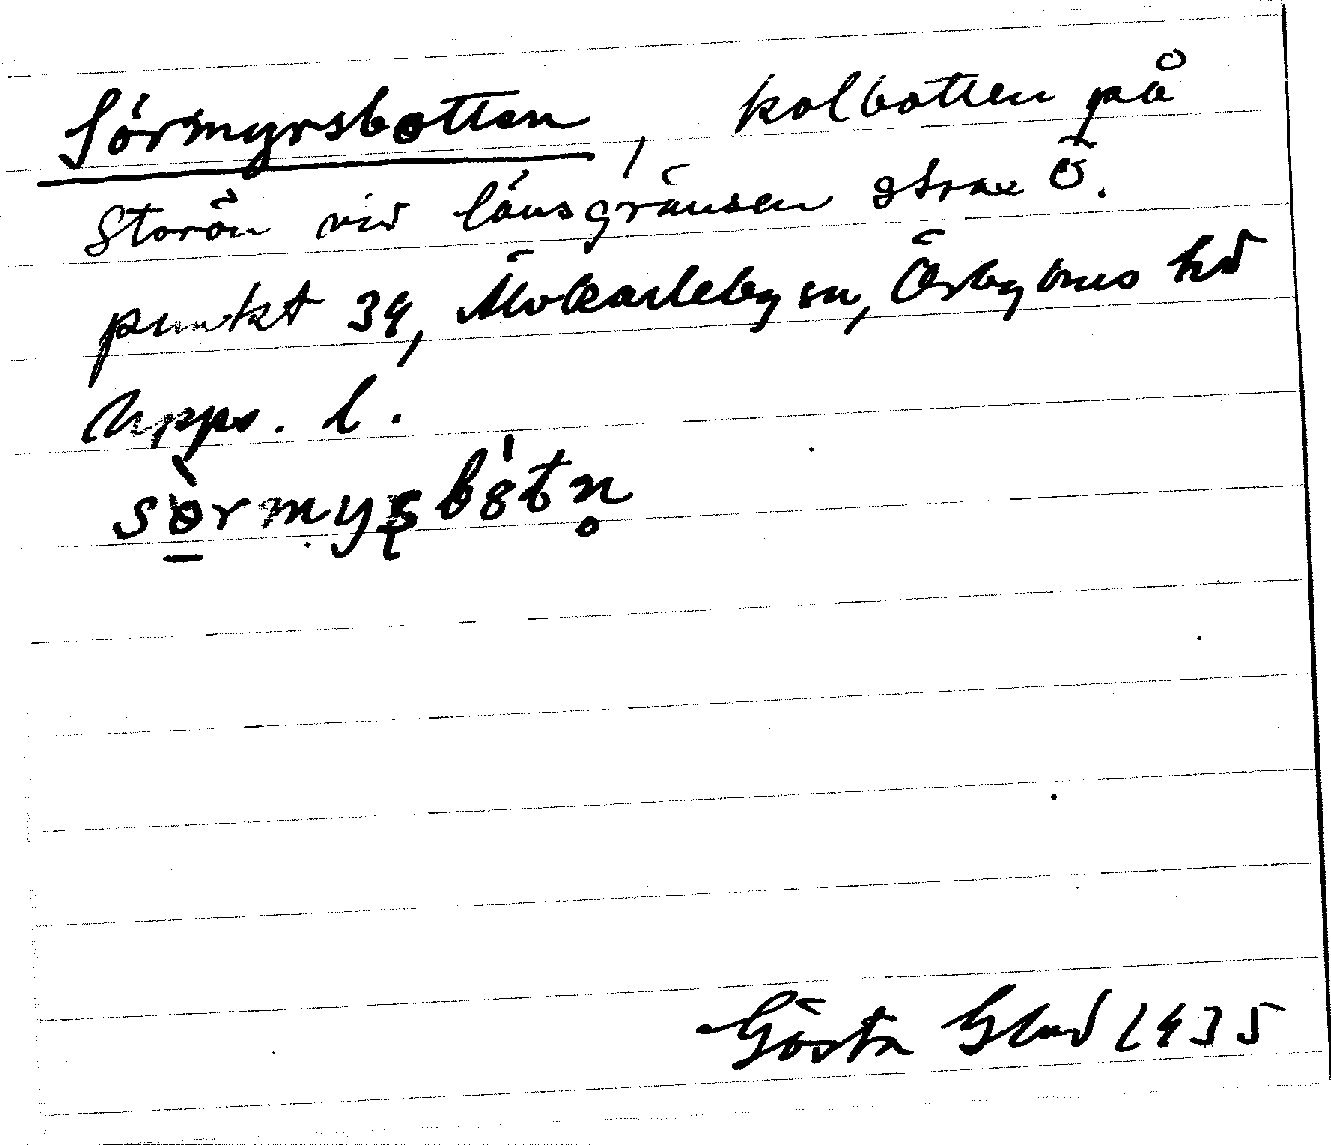 Sörmyrsbotten, kolbotten på
Storön vid länsgränsen strax Ö.
punkt 39, Älvkarleby sn, Örbyhus hd
Upps. l.
Gösta Glad 1935